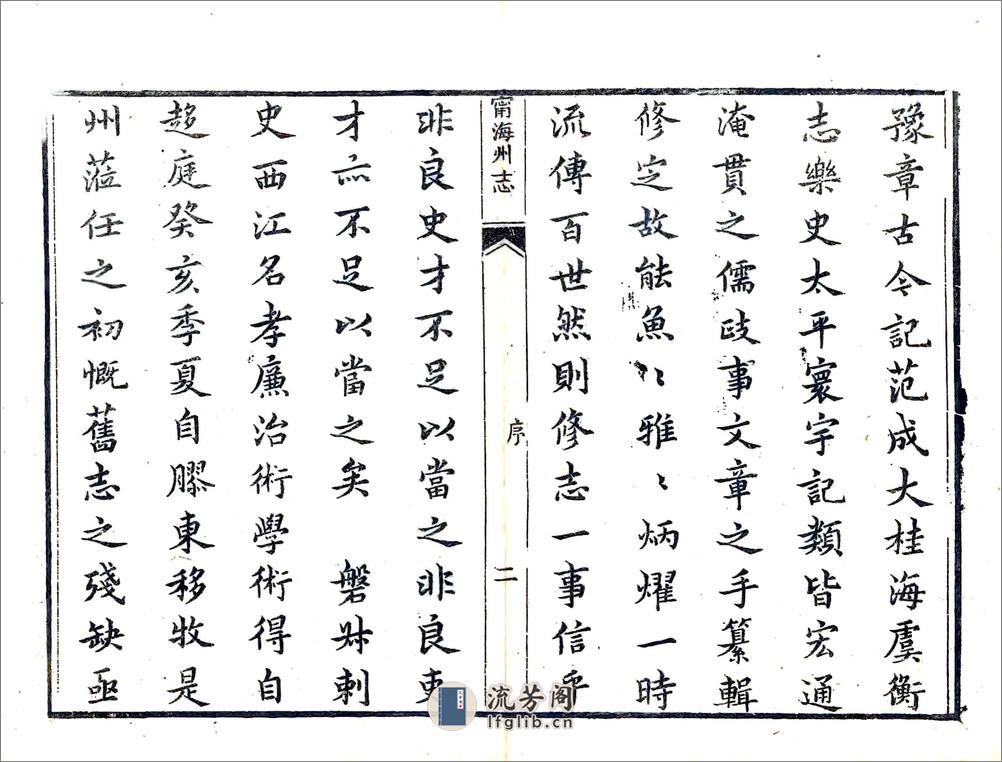 豫章古今記范成大桂海虞衡
志樂史太平寰宇記類皆宏通
淹貫之儒歧事文章之手纂輯
修定故能魚〻雅〻炳燿一時
流傳百世然則修志一事信乎
甯海州志
序
二
非良史才不足以當之非良吏
才亦不足以當之矣 磐舟刺
史西江名孝廉治術學術得自
趍庭癸亥季夏自膠東移牧是
州蒞任之初慨舊志之殘缺亟
流芳阁
lfglib.cn